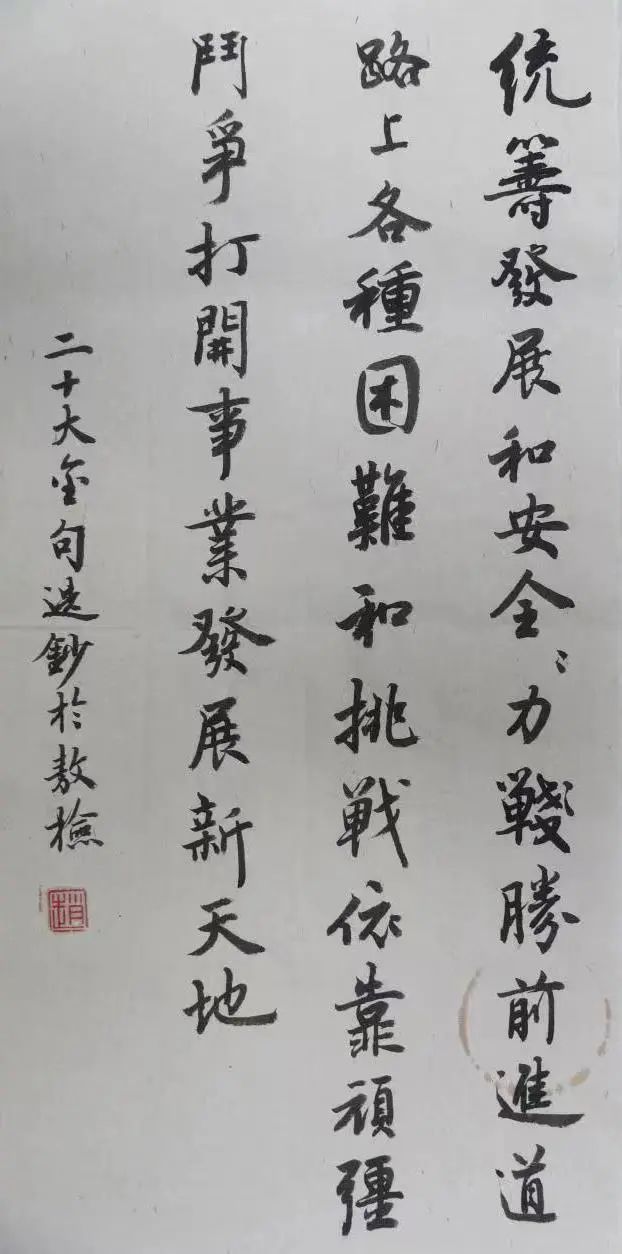 統籌發展和安全〻力戰勝前進道
路上各種困難和挑戰依靠頑彊
鬥爭打開事業發展新天地
二十大金句選鈔於敖檢
趙